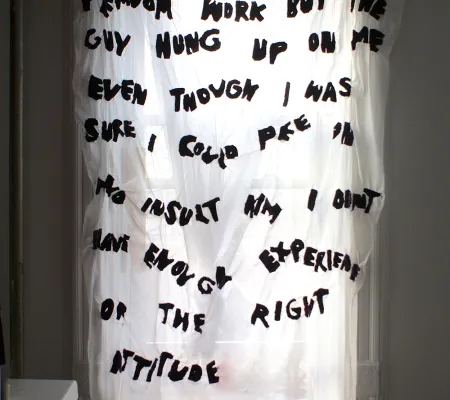 WORK BUT THE
GUY HUNG UP ON ME
EVEN THOUGH I WAS
SURE I COULD PEE IN
AND INSULT HIM I DONT
HAVE ENOUGH EXPERIENCE
OR THE RIGHT
ATTITUDE